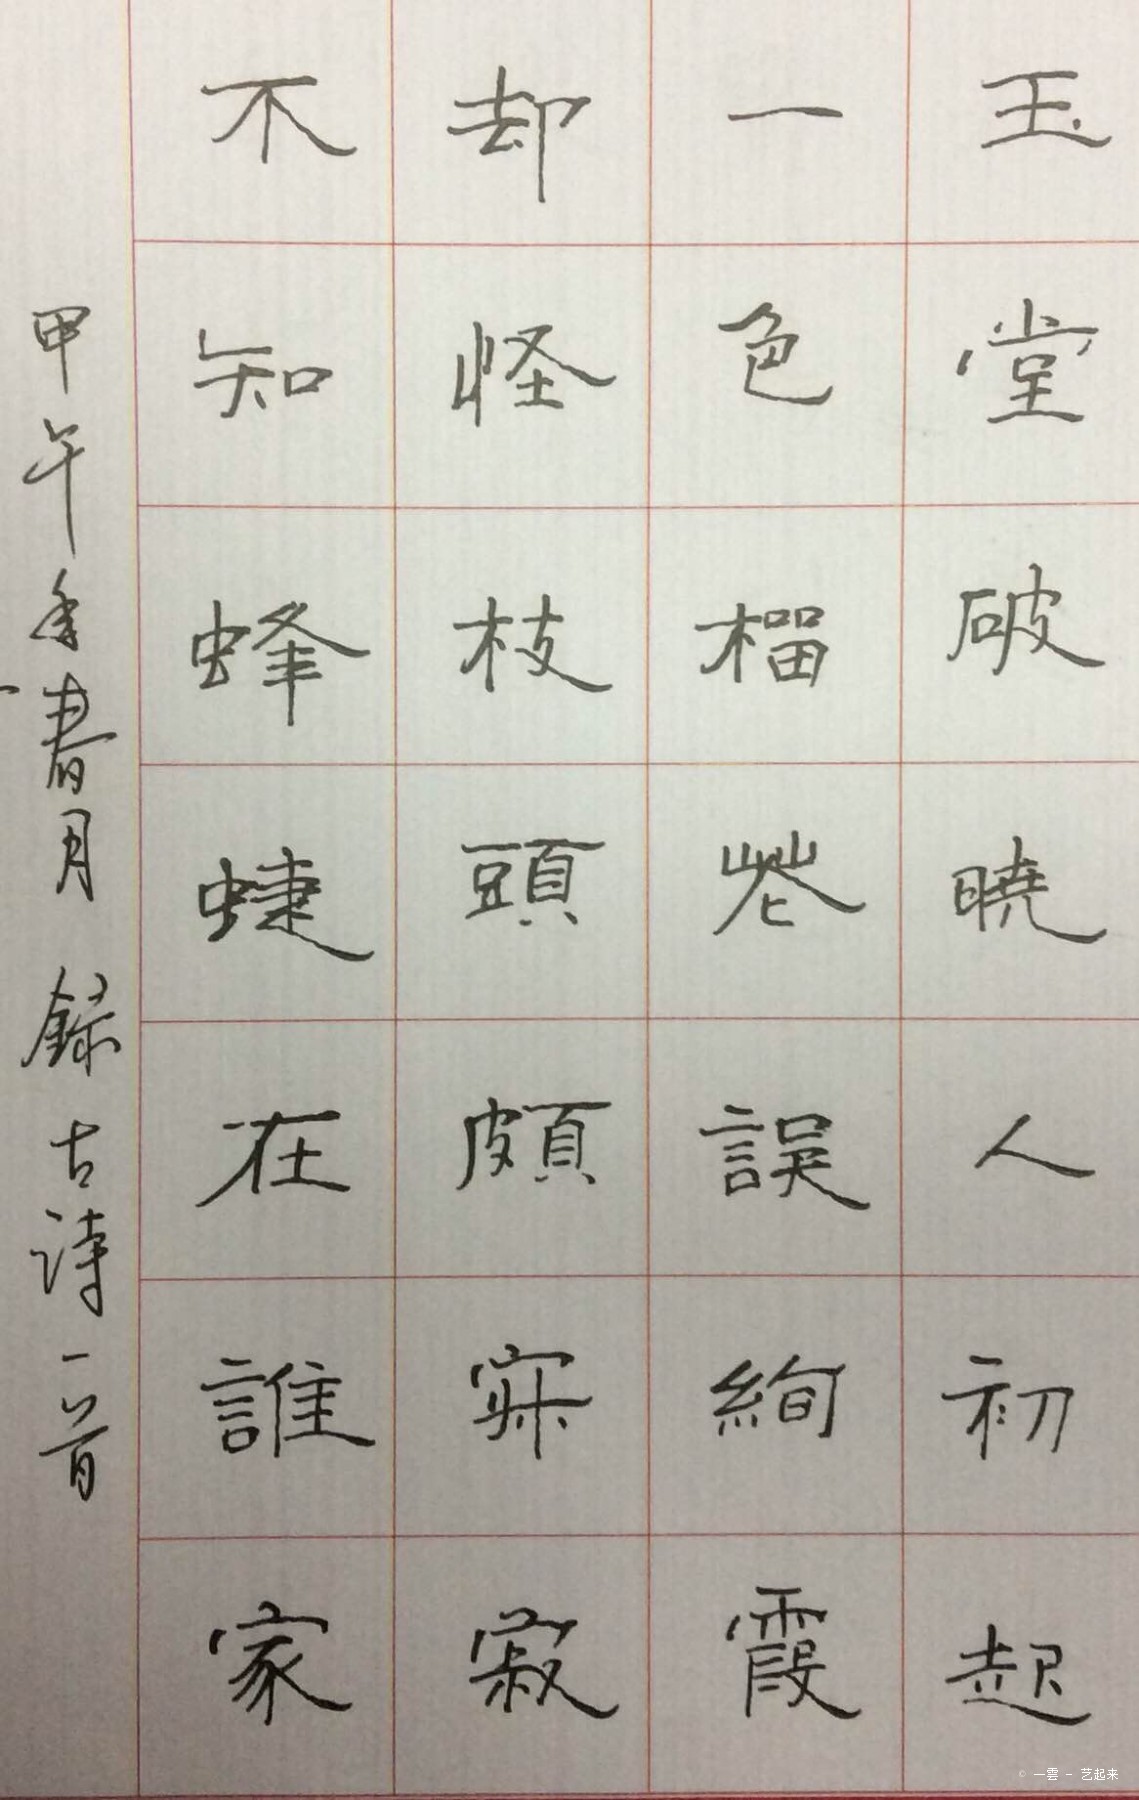 玉堂破曉人初起
一色榴花誤絢霞
却怪枝頭頗寂寂
不知蜂蜨在誰家
甲午年春月 錄古詩一首
© 一雲 - 艺起来